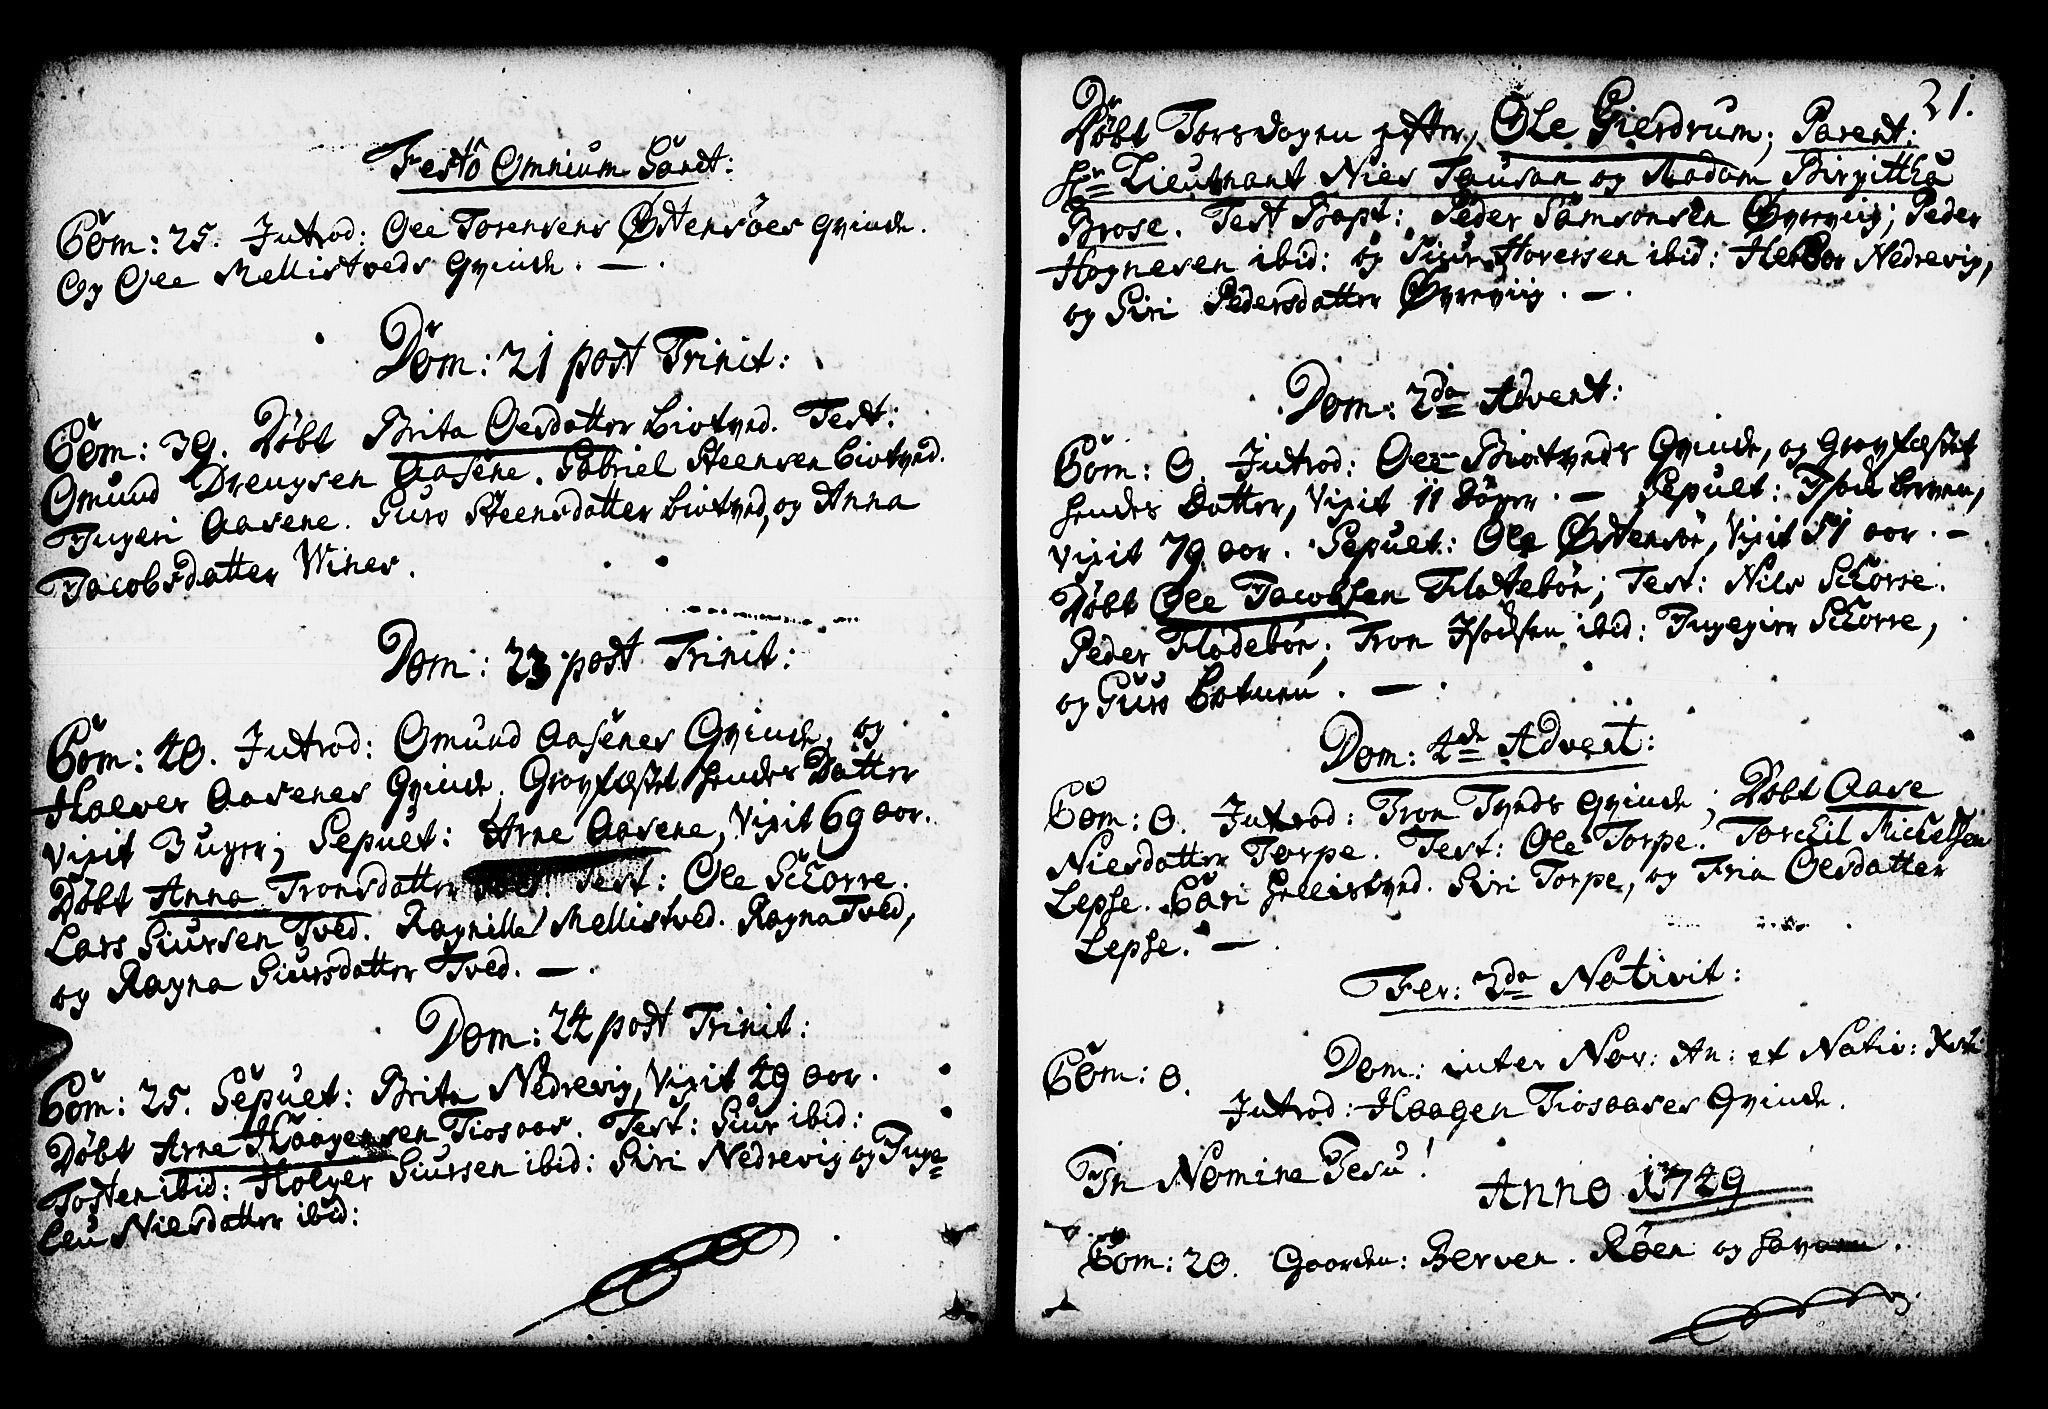 Festo Omnium Sanct:
Com: 25. Introd: Ole Torensens Østensöes Qvinde.
Og Ole Mellistveds Qvinde. —.
Dom: 21 post Trinit:
Com: 39. Döbt Brita Oesdatter Biotved. Test:
Omund Drengsen Aasene. Gabriel Steensen Biotved.
Ingeri Aasene. Guro Steensdatter Biotved, og Anna
Jacobsdatter Wines.
Dom: 23 post Trinit:
Com: 40. Introd: Omund Aasenes Qvinde, og
Halver Aasenes Qvinde, Gravfæstet hendes Datter
vixit 3 uger; Sepult: Arne Aasene, Vixit 69 aar.
Döbt Anna Tronsdatter Test: Ole Skorre.
Lars Siursen Tved. Ragnille Mellistved. Ragna Tved,
og Ragna Siursdatter Tved. —.
Dom: 24 post Trinit:
Com: 25. Sepult: Brita Nedrevig, Vixit 49 aar.
Döbt Arne Haagensen Tiosaas. Test: Siur ibid:
Tosten ibid: Holger Siursen ibid: Siri Nedrevig og Inge-
leu Nielsdatter ibid:
21.
Döbt Torsdagen efter, Ole Gierdrum; Parent:
Hr Lieutnant Niels Tausan og Madam Birgittha
Brose. Test Bapt: Peder Samsonsen Øvrevig; Peder
Hognesen ibid: og Siur Haversen ibid: Nedrevig,
og Siri Pedersdatter Øvrevig. —.
Dom: 2da Advent:
Com: 0. Introd: Ole Biotveds Qvinde, og Gravfæstet
hendes Datter, Vixit 11 Döger. — Sepult: Berven,
Vixit 79 aar. Sepult: Ole Østensön, Vixit 51 aar. —
Döbt Ole Jacobsen Flotebön; Test: Nils Skorre.
Peder Flodebön; Tron ibid: Ingegier Skorre,
og Guro Botnen. —.
Dom: 4de Advent:
Com: 0. Introd: Tron Tveds Qvinde; Döbt Aase
Nielsdatter Torpe. Test: Ole Torpe. Torckil Michelsen
Lepse. Cari Hellistved. Siri Torpe, og Oesdatter
Lepse. —.
Fer: 2da Nativit:
Com: 0. Dom: inter Nov: An: et Nativ: Xsti
Introd: Haagen Tiosaases Qvinde.
In Nomine Jesu!
Anno 1749
Com: 20. Gaarden: Berven. Röen og